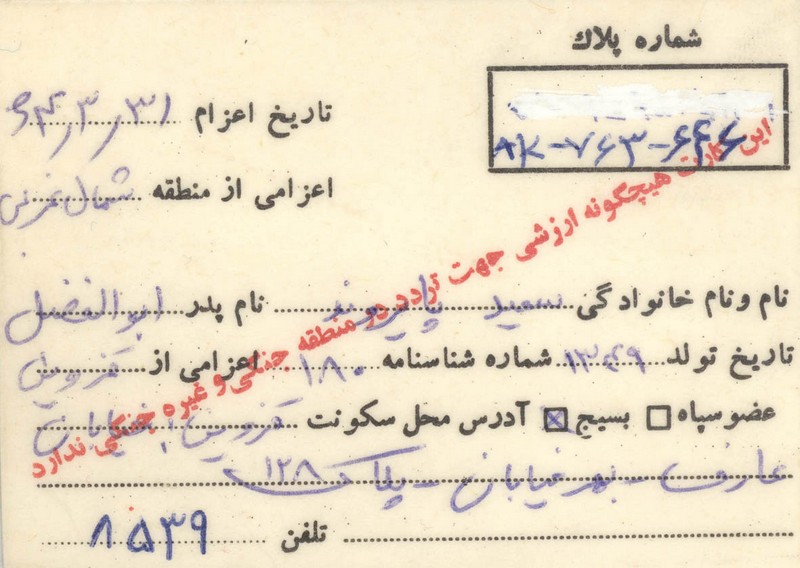 شماره پلاك
AK-۷۶۳-۶۴۶
تاریخ اعزام ۶۴٫۳٫۳۱
اعزامی از منطقه شمالغرب
نام و نام خانوادگی سعید پاپروند نام پدر ابوالفضل
تاریخ تولد ۱۳۴۹ شماره شناسنامه ۱۸۰ اعزامی از قزوین
عضو سپاه بسیج آدرس محل سکونت قزوین خیابان
عارف - نهر خیابان - پلاک ۱۲۸
تلفن ۸۵۳۹
این کارت هیچگونه ارزشی جهت تردد در منطقه جنگی و غیره جنگی ندارد